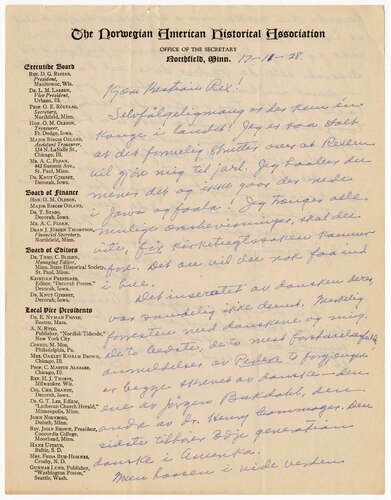 The Norwegian American Historical Association
OFFICE OF THE SECRETARY
Northfield, Minn. 17-11-28.
Executive Board
REV. D. G. RISTAD,
President,
Manitowoc, Wis.
DR. L. M. LARSON,
Vice President,
Urbana, Ill.
PROF. O. E. RÖLVAAG,
Secretary,
Northfield, Minn.
HON. O. M. OLESON,
Treasurer,
Ft. Dodge, Iowa.
MAJOR BIRGER OSLAND,
Assistant Treasurer,
134 N. LaSalle St.
Chicago, Ill.
MR. A. C. FLOAN,
442 Summit Ave.,
St. Paul, Minn.
DR. KNUT GJERSET,
Decorah, Iowa.
Board of Finance
HON. O. M. OLESON
MAJOR BIRGER OSLAND,
DR. T. STABO,
Decorah, Iowa.
MR. A. C. FLOAN
DEAN J. JÖRGEN THOMPSON,
Financial Secretary,
Northfield, Minn.
Board of Editors
DR. THEO. C. BLEGEN,
Managing Editor,
Minn. State Historical Society,
St. Paul, Minn.
KRISTIAN PRESTGARD,
Editor, "Decorah Posten,"
Decorah, Iowa.
DR. KNUT GJERSET,
Decorah, Iowa.
Local Vice Presidents
DR. E. NYMAN FIGVED,
Boston, Mass.
A. N. RYGG,
Publisher, "Nordisk Tidende,"
New York City.
CONSUL M. MOE,
Philadelphia, Pa.
MRS. OAKLEY KISSAM BROWN,
Chicago, Ill.
PROF. C. MARTIN ALSAGER,
Chicago, Ill.
REV. H. J. THORPE,
Milwaukee, Wis.
COL. CHR. BRANDT,
Decorah, Iowa.
DR. G. T. LEE, Editor,
"Lutheran Church Herald,"
Minneapolis, Minn.
JOHN NORWOG,
Duluth, Minn.
REV. JOHN BROWN, President,
Concordia College,
Moorhead, Minn.
HANS USTRUD,
Baltic, S. D.
MRS. FREDA BUE-HOMNES,
Crosby, N. D.
GUNNAR LUND, Publisher,
"Washington Posten,"
Seattle, Wash.
Kjære Kristian Rex!
Selvfølgelig mang er det som én
Konge i landet. Jeg er saa stolt
at det formelig strutter over at Rexen
vil gjøre mig til jarl. Jeg
mener det og ikke gaar det ned
i Java og faala! Jeg
mulige ønskevisninger, skal det
vite, for
fort. Det au vil den nok faa ind
i hue.
Det inseratet av dansken deres
var sandelig ikke dumt. Merkelig
forresten med danskene og mig.
De to bedste, de to mest
anmeldelser av Peder
er begge skrevet av dansker— den
ene av Jørgen Bukdahl, den
andre av Dr. Henry Commager. Den
sidste tilhører 3dje generation
danske i Amerika.
Men hvordan i vide verden